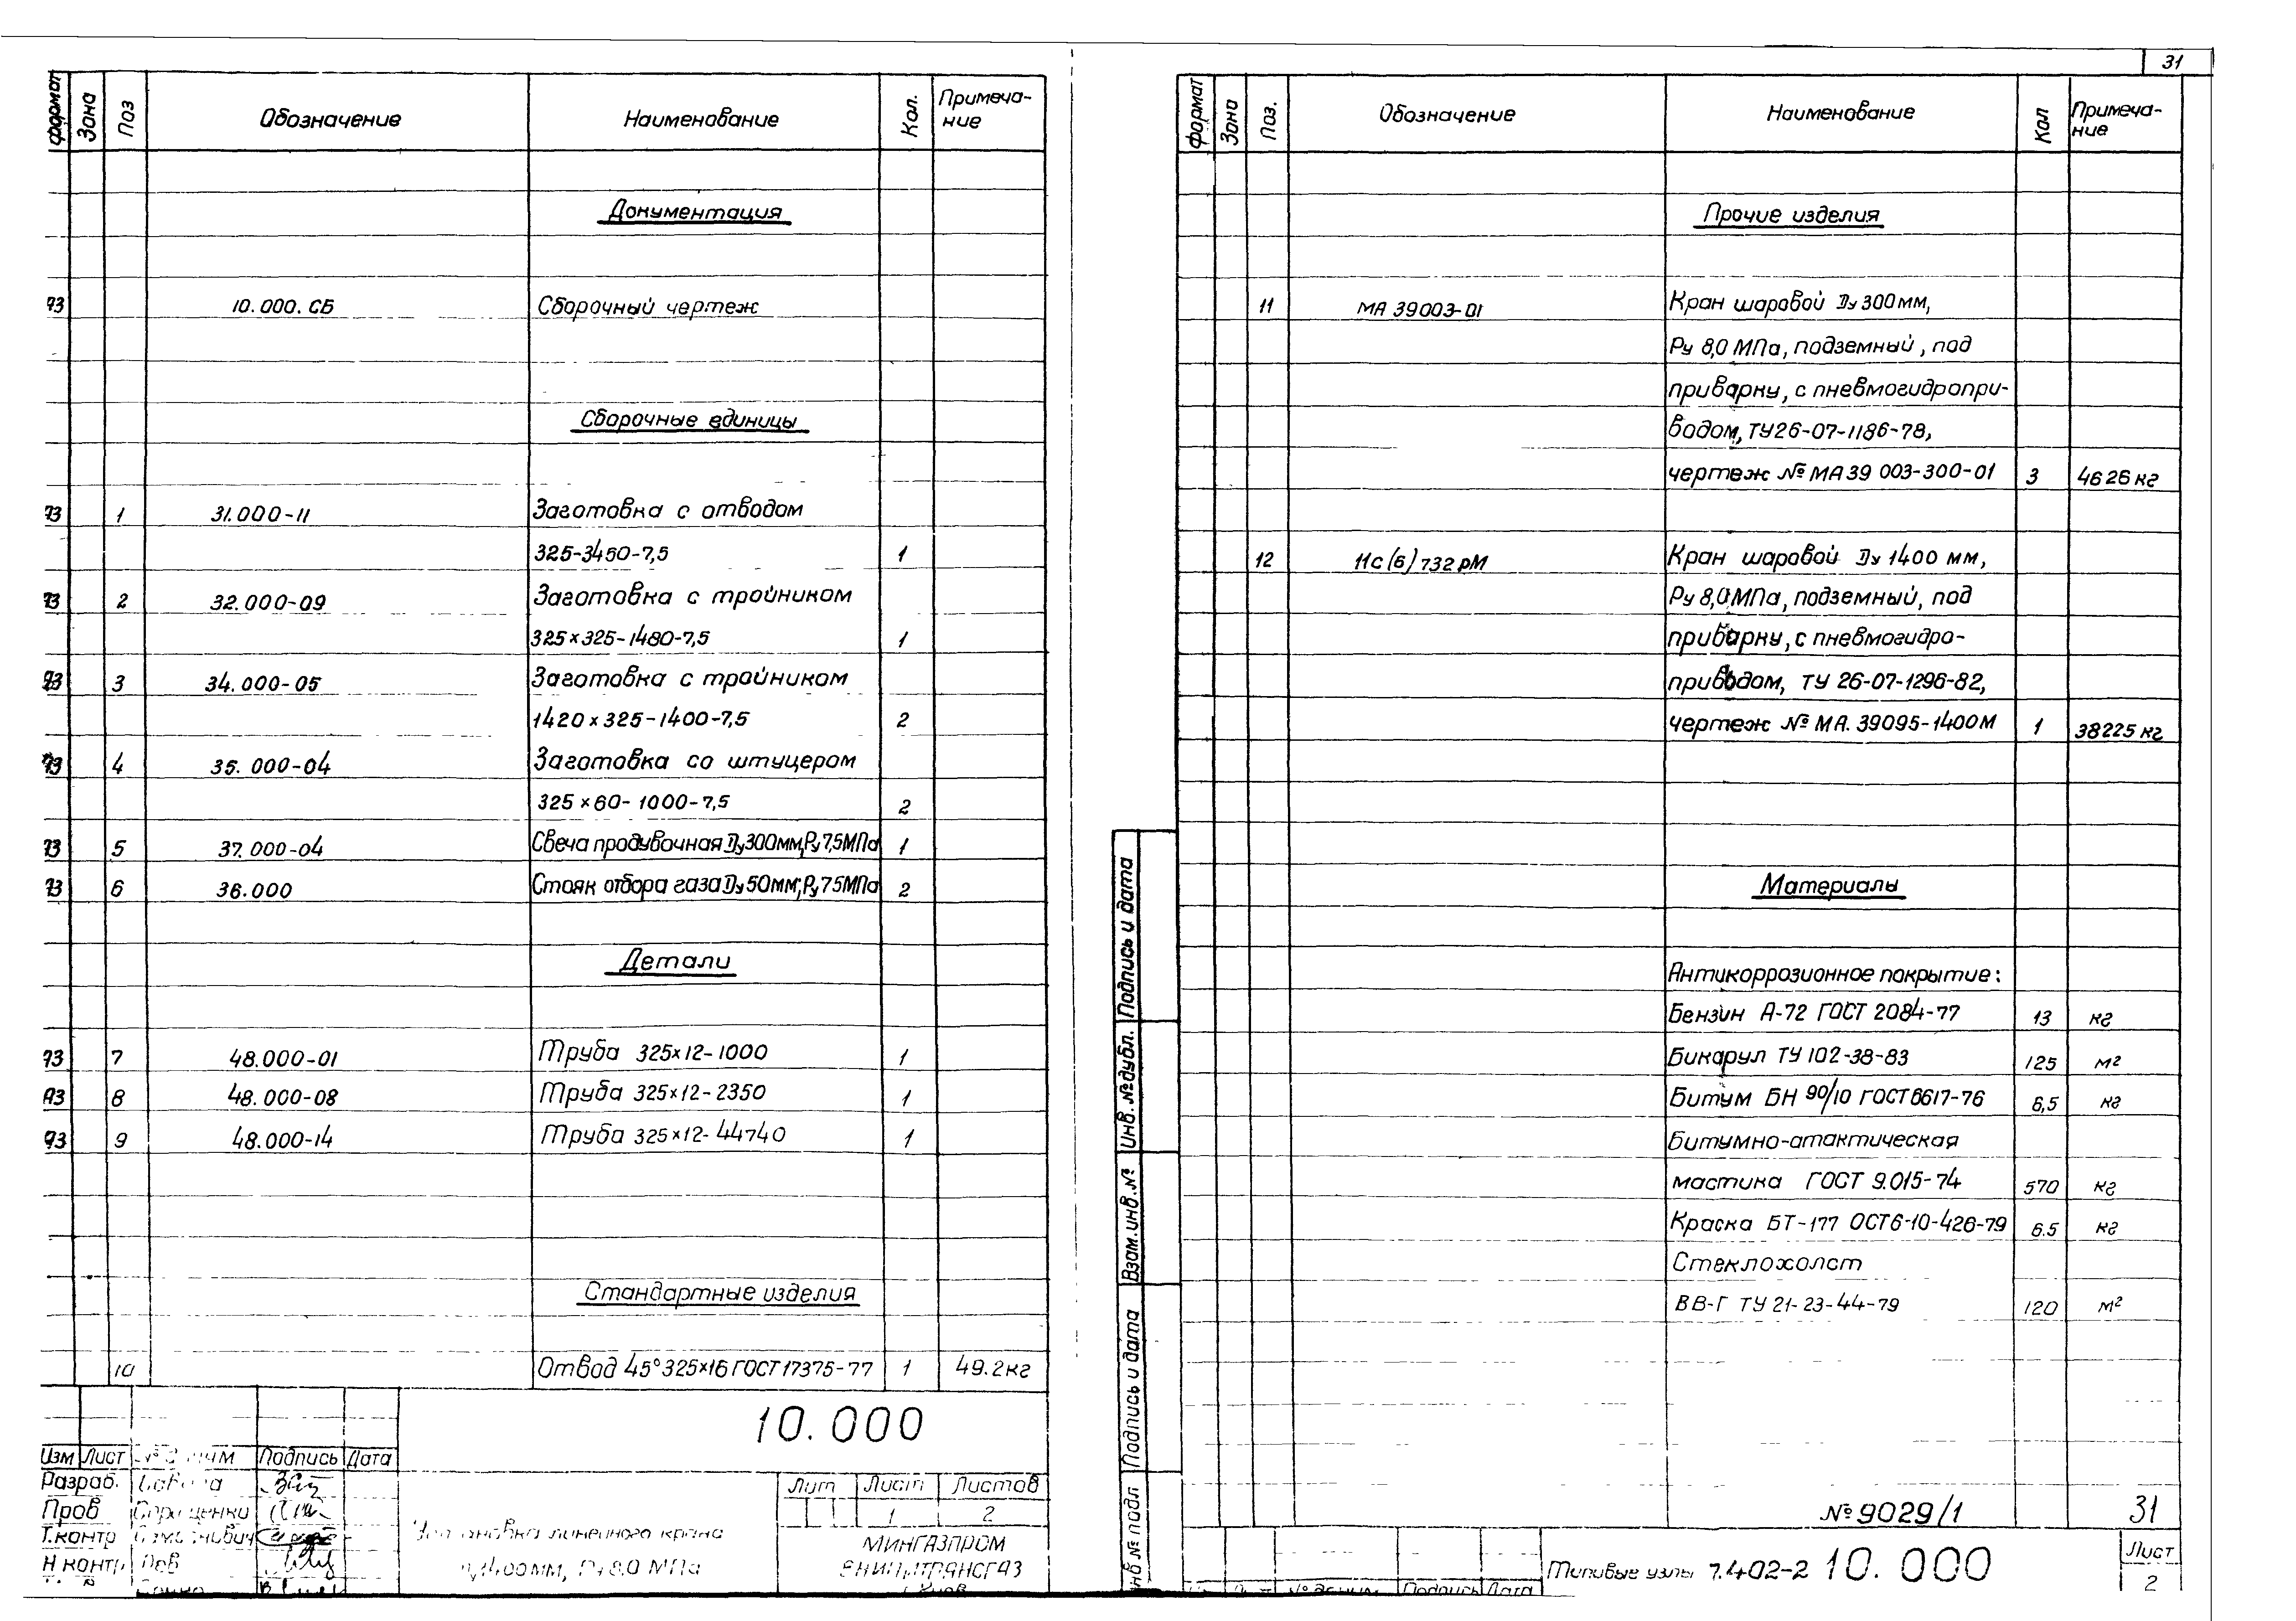 31
формат Зона Поз Обозначение Наименование Кол. Примеча-
ние
Документация
А3 10.000.СБ Сборочный чертеж
Сборочные единицы
А3 1 31.000-11 Заготовка с отводом
325-3450-7,5 1
А3 2 32.000-09 Заготовка с тройником
325×325-1480-7,5 1
А3 3 34.000-05 Заготовка с тройником
1420×325-1400-7,5 2
А3 4 35.000-04 Заготовка со штуцером
325×60-1000-7,5 2
А3 5 37.000-04 Свеча продувочная Ду300мм,Ру7,5МПа 1
А3 6 36.000 Стояк отбора газа Ду50мм,Ру7,5МПа 2
Детали
А3 7 48.000-01 Труба 325×12-1000 1
А3 8 48.000-08 Труба 325×12-2350 1
А3 9 48.000-14 Труба 325×12-44740 1
Стандартные изделия
10 Отвод 45°325×16 ГОСТ 17375-77 1 49.2кг
10.000
Изм Лист Подпись Дата
Разраб.
Пров
Т.контр
Н контр
линейного крана
1400мм, Ру 8,0 МПа
Лит Лист Листов
1 2
МИНГАЗПРОМ
формат Зона Поз. Обозначение Наименование Кол Примеча-
ние
Прочие изделия
11 МА 39003-01 Кран шаровой Ду 300мм,
Ру 8,0 МПа, подземный, под
приварку, с пневмогидропри-
водом, ТУ26-07-1186-78,
чертеж № МА 39 003-300-01 3 4626 кг
12 11с(6)732рМ Кран шаровой Ду 1400 мм,
Ру 8,0 МПа, подземный, под
приварку, с пневмогидро-
приводом, ТУ 26-07-1296-82,
чертеж № МА. 39095-1400М 1 38225 кг
Материалы
Антикоррозионное покрытие:
Бензин А-72 ГОСТ 2084-77 13 кг
Бикарул ТУ 102-38-83 125 м²
Битум БН 90/10 ГОСТ 6617-76 6,5 кг
Битумно-атактическая
мастика ГОСТ 9.015-74 570 кг
Краска БТ-177 ОСТ6-10-426-79 6.5 кг
Стеклохолст
ВВ-Г ТУ 21-23-44-79 120 м²
Подпись и дата
Инв. № дубл.
Взам. инв. №
Подпись и дата
№ подл
№ 9029/1 31
Типовые узлы 7.402-2 10.000
Лист
2
Подпись Дата